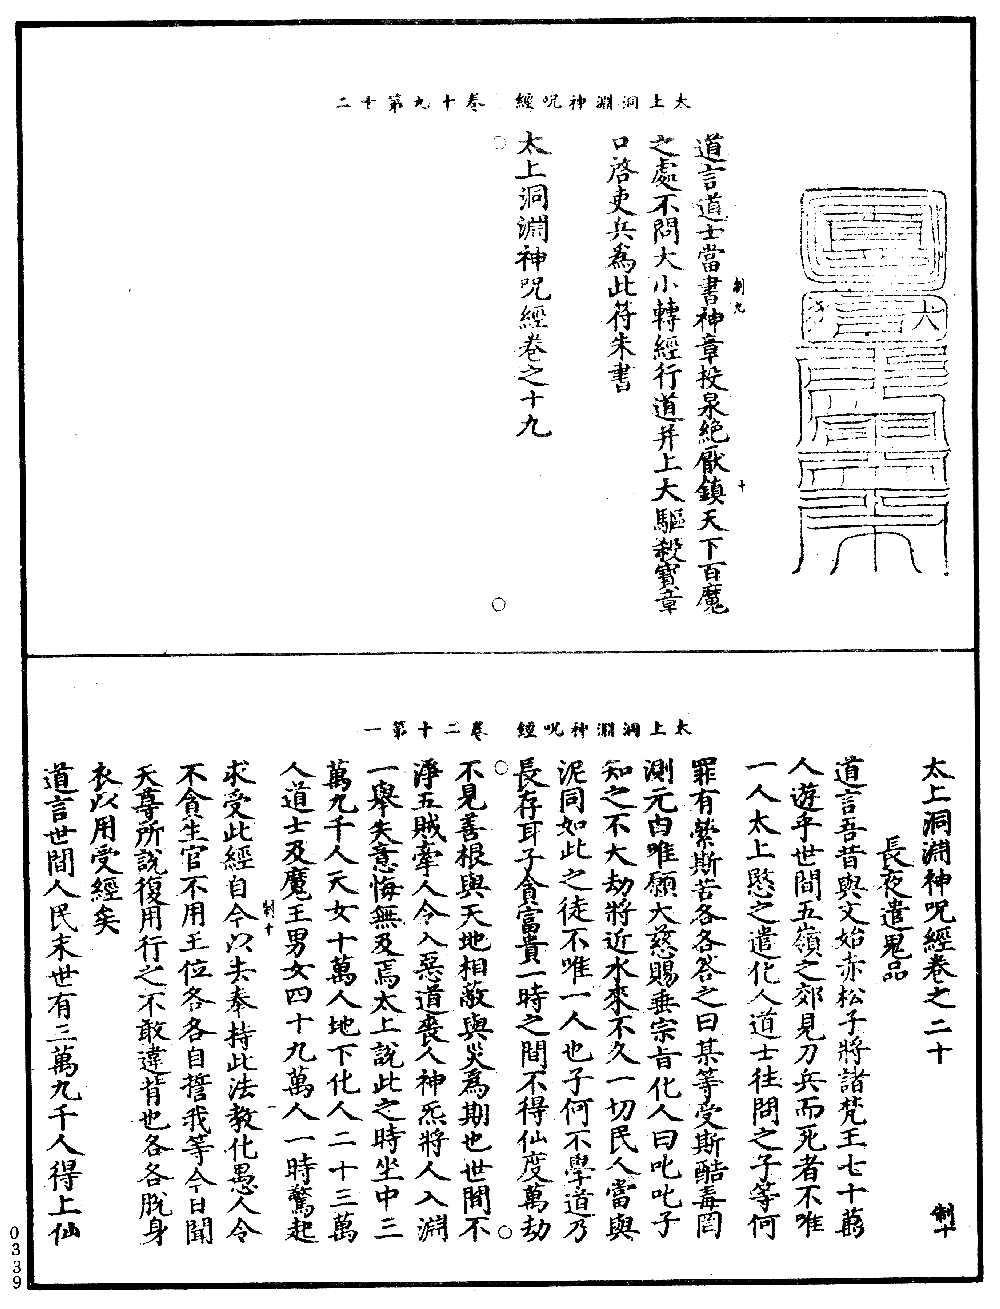 太上洞淵神呪經　卷十九第十二
道言道士當書神章投泉絶厭鎮天下百魔
之處不問大小轉經行道并上大驅殺寳章
口啓吏兵爲此符朱書
太上洞淵神呪經卷之十九
制九
十
太上洞淵神呪經　卷二十第一
太上洞淵神呪經卷之二十
制十
長夜遣鬼品
道言吾昔與文始赤松子將諸梵王七十萬
人遊乎世間五嶺之郊見刀兵而死者不唯
一人太上愍之遣化人道士往問之子等何
罪有縈斯苦各各答之曰某等受斯酷毒罔
測元由唯願大慈賜垂宗旨化人曰叱叱子
知之不大劫將近水來不久一切民人當與
泥同如此之徒不唯一人也子何不學道乃
長存耳子貪富貴一時之間不得仙度萬劫
不見善根與天地相敵與災爲期也世間不
淨五賊牽人令入惡道喪人神炁將人入淵
一舉失意悔無及焉太上說此之時坐中三
萬九千人天女十萬人地下化人二十三萬
人道士及魔王男女四十九萬人一時驚起
制十
求受此經自今以去奉持此法教化愚人令
不貪生官不用王位各各自誓我等今日聞
天尊所說復用行之不敢違背也各各脫身
衣以用受經矣
道言世間人民末世有三萬九千人得上仙
0339